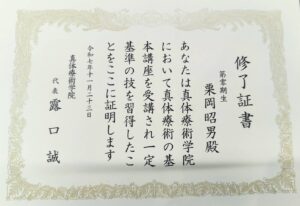 修了証書
第零期生
栗岡昭男殿
あなたは真体療術学院
において真体療術の基
本講座を受講され一定
基準の技を習得したこ
とをここに証明します
令和七年十一月二十三日
真体療術学院
代表 露口誠